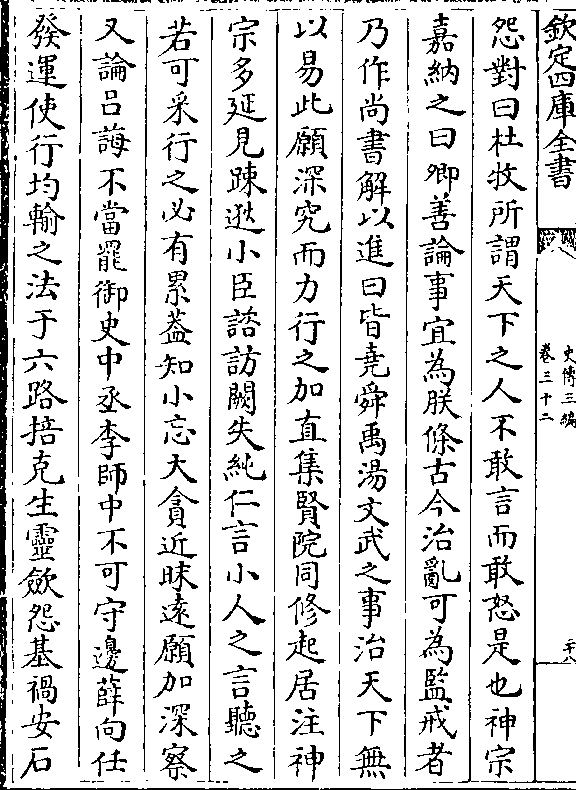 欽定四庫全書
史傳三編
卷三十二
怨對曰杜牧所謂天下之人不敢言而敢怒是也神宗
嘉納之曰卿善論事宜為朕條古今治亂可為監戒者
乃作尚書解以進曰皆堯舜禹湯文武之事治天下無
以易此願深究而力行之加直集賢院同修起居注神
宗多延見踈逖小臣諮訪闕失純仁言小人之言聽之
若可采行之必有累葢知小忘大貪近昧遠願加深察
又論吕誨不當罷御史中丞李師中不可守邊薛向任
發運使行均輸之法于六路掊克生靈歛怨基禍安石